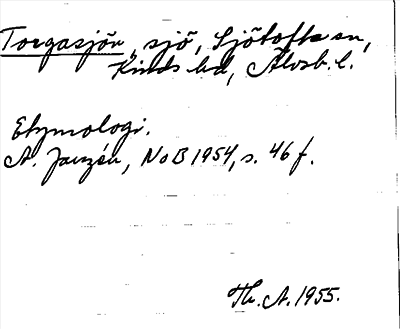 Torgasjön, sjö, Sjötofta sn,
Kinds hd, Älvsb. l.
Etymologi.
A. Janzén, NoB 1954, s. 46 f.
Th. A. 1955.